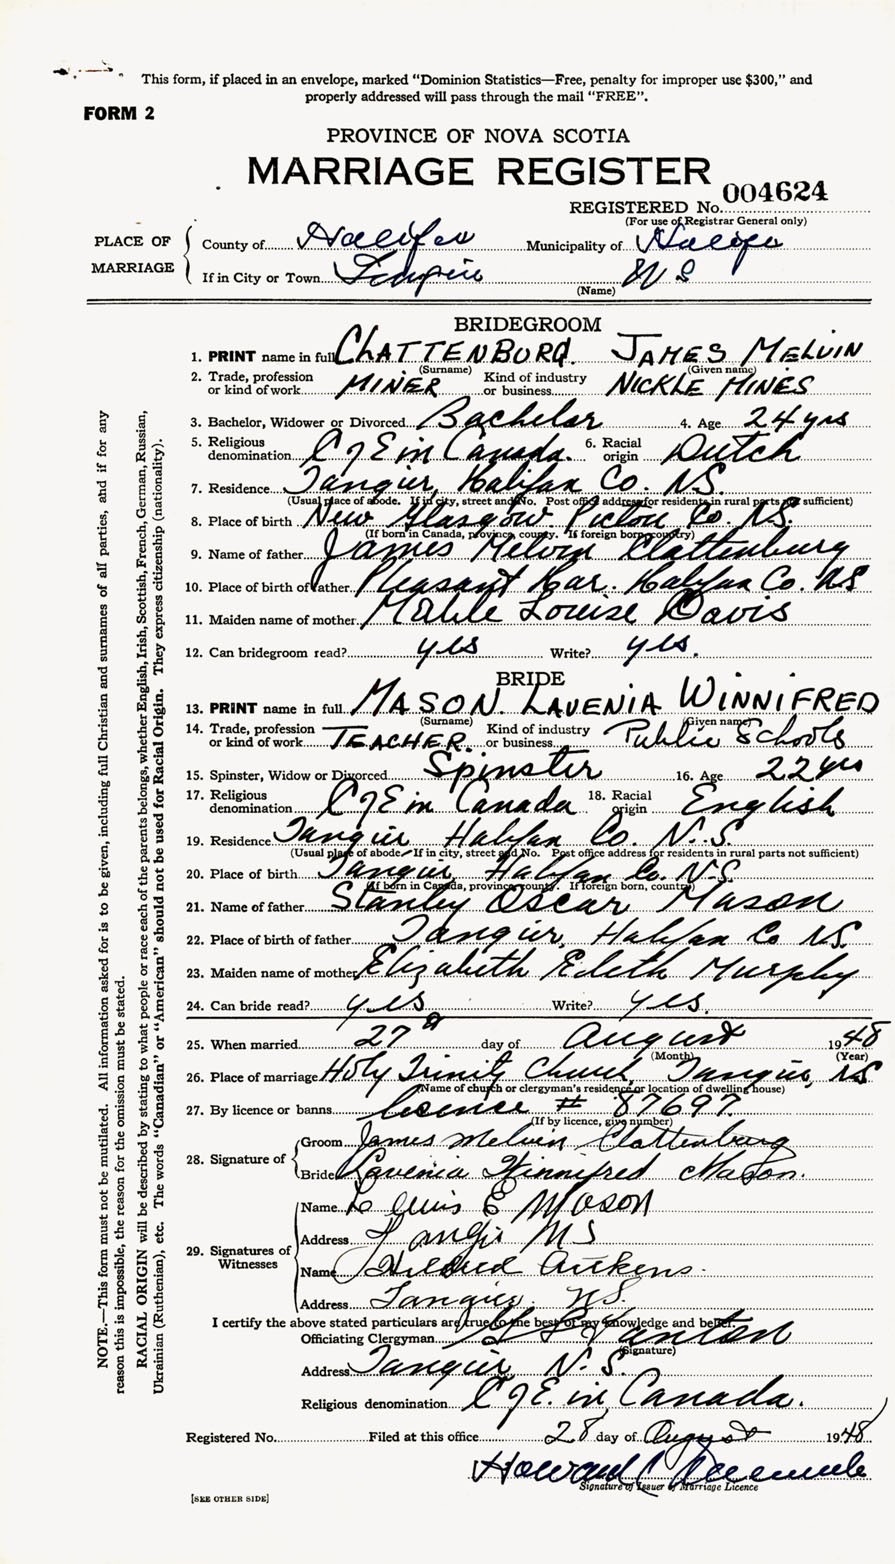 This form, if placed in an envelope, marked “Dominion Statistics—Free, penalty for improper use $300,” and
properly addressed will pass through the mail “FREE”.
FORM 2
PROVINCE OF NOVA SCOTIA
MARRIAGE REGISTER
REGISTERED No. 004624
(For use of Registrar General only)
PLACE OF MARRIAGE
County of Halifax Municipality of Halifax
If in City or Town Tangier N S
(Name)
BRIDEGROOM
1. PRINT name in full CHATTENBURG. JAMES MELVIN
(Surname) (Given name)
2. Trade, profession or kind of work MINER Kind of industry or business NICKLE MINES
3. Bachelor, Widower or Divorced Bachelor 4. Age 24 yrs
5. Religious denomination C of E in Canada. 6. Racial origin Dutch
7. Residence Tangier, Halifax Co. N.S.
(Usual place of abode. If in city, street and No. Post office address for residents in rural parts not sufficient)
8. Place of birth New Glasgow Pictou Co. N.S.
(If born in Canada, province, county. If foreign born, country)
9. Name of father James Melvin Clattenburg
10. Place of birth of father Pleasant Har. Halifax Co. N.S
11. Maiden name of mother Louise Davis
12. Can bridegroom read? yes Write? yes.
BRIDE
13. PRINT name in full MASON. LAVENIA WINNIFRED
(Surname) (Given name)
14. Trade, profession or kind of work TEACHER. Kind of industry or business Public Schools
15. Spinster, Widow or Divorced Spinster 16. Age 22 yrs
17. Religious denomination C of E in Canada 18. Racial origin English
19. Residence Tangier Halifax Co. N.S.
(Usual place of abode. If in city, street and No. Post office address for residents in rural parts not sufficient)
20. Place of birth Tangier, Halifax Co. N.S.
(If born in Canada, province, county. If foreign born, country)
21. Name of father Stanley Oscar Mason
22. Place of birth of father Tangier, Halifax Co N.S.
23. Maiden name of mother Elizabeth Edith Murphy
24. Can bride read? yes Write? yes.
25. When married 27th day of August 1948
(Month) (Year)
26. Place of marriage Holy Trinity Church, Tangier, N.S
(Name of church or clergyman's residence or location of dwelling house)
27. By licence or banns licence # 87697.
(If by licence, give number)
28. Signature of
Groom James Melvin Clattenburg
Bride Lavenia Winnifred Mason.
29. Signatures of Witnesses
Name E Mason
Address Tangier N S
Name Hildred Aitkens.
Address Tangier. N.S.
I certify the above stated particulars are true to the best of my knowledge and belief.
Officiating Clergyman
(Signature)
Address Tangier, N.S.
Religious denomination C of E. in Canada.
Registered No. Filed at this office 28 day of August 1948
Howard
Signature of Issuer of Marriage Licence
[SEE OTHER SIDE]
NOTE.—This form must not be mutilated. All information asked for is to be given, including full Christian and surnames of all parties, and if for any
reason this is impossible, the reason for the omission must be stated.
RACIAL ORIGIN will be described by stating to what people or race each of the parents belongs, whether English, Irish, Scottish, French, German, Russian,
Ukrainian (Ruthenian), etc. The words “Canadian” or “American” should not be used for Racial Origin. They express citizenship (nationality).